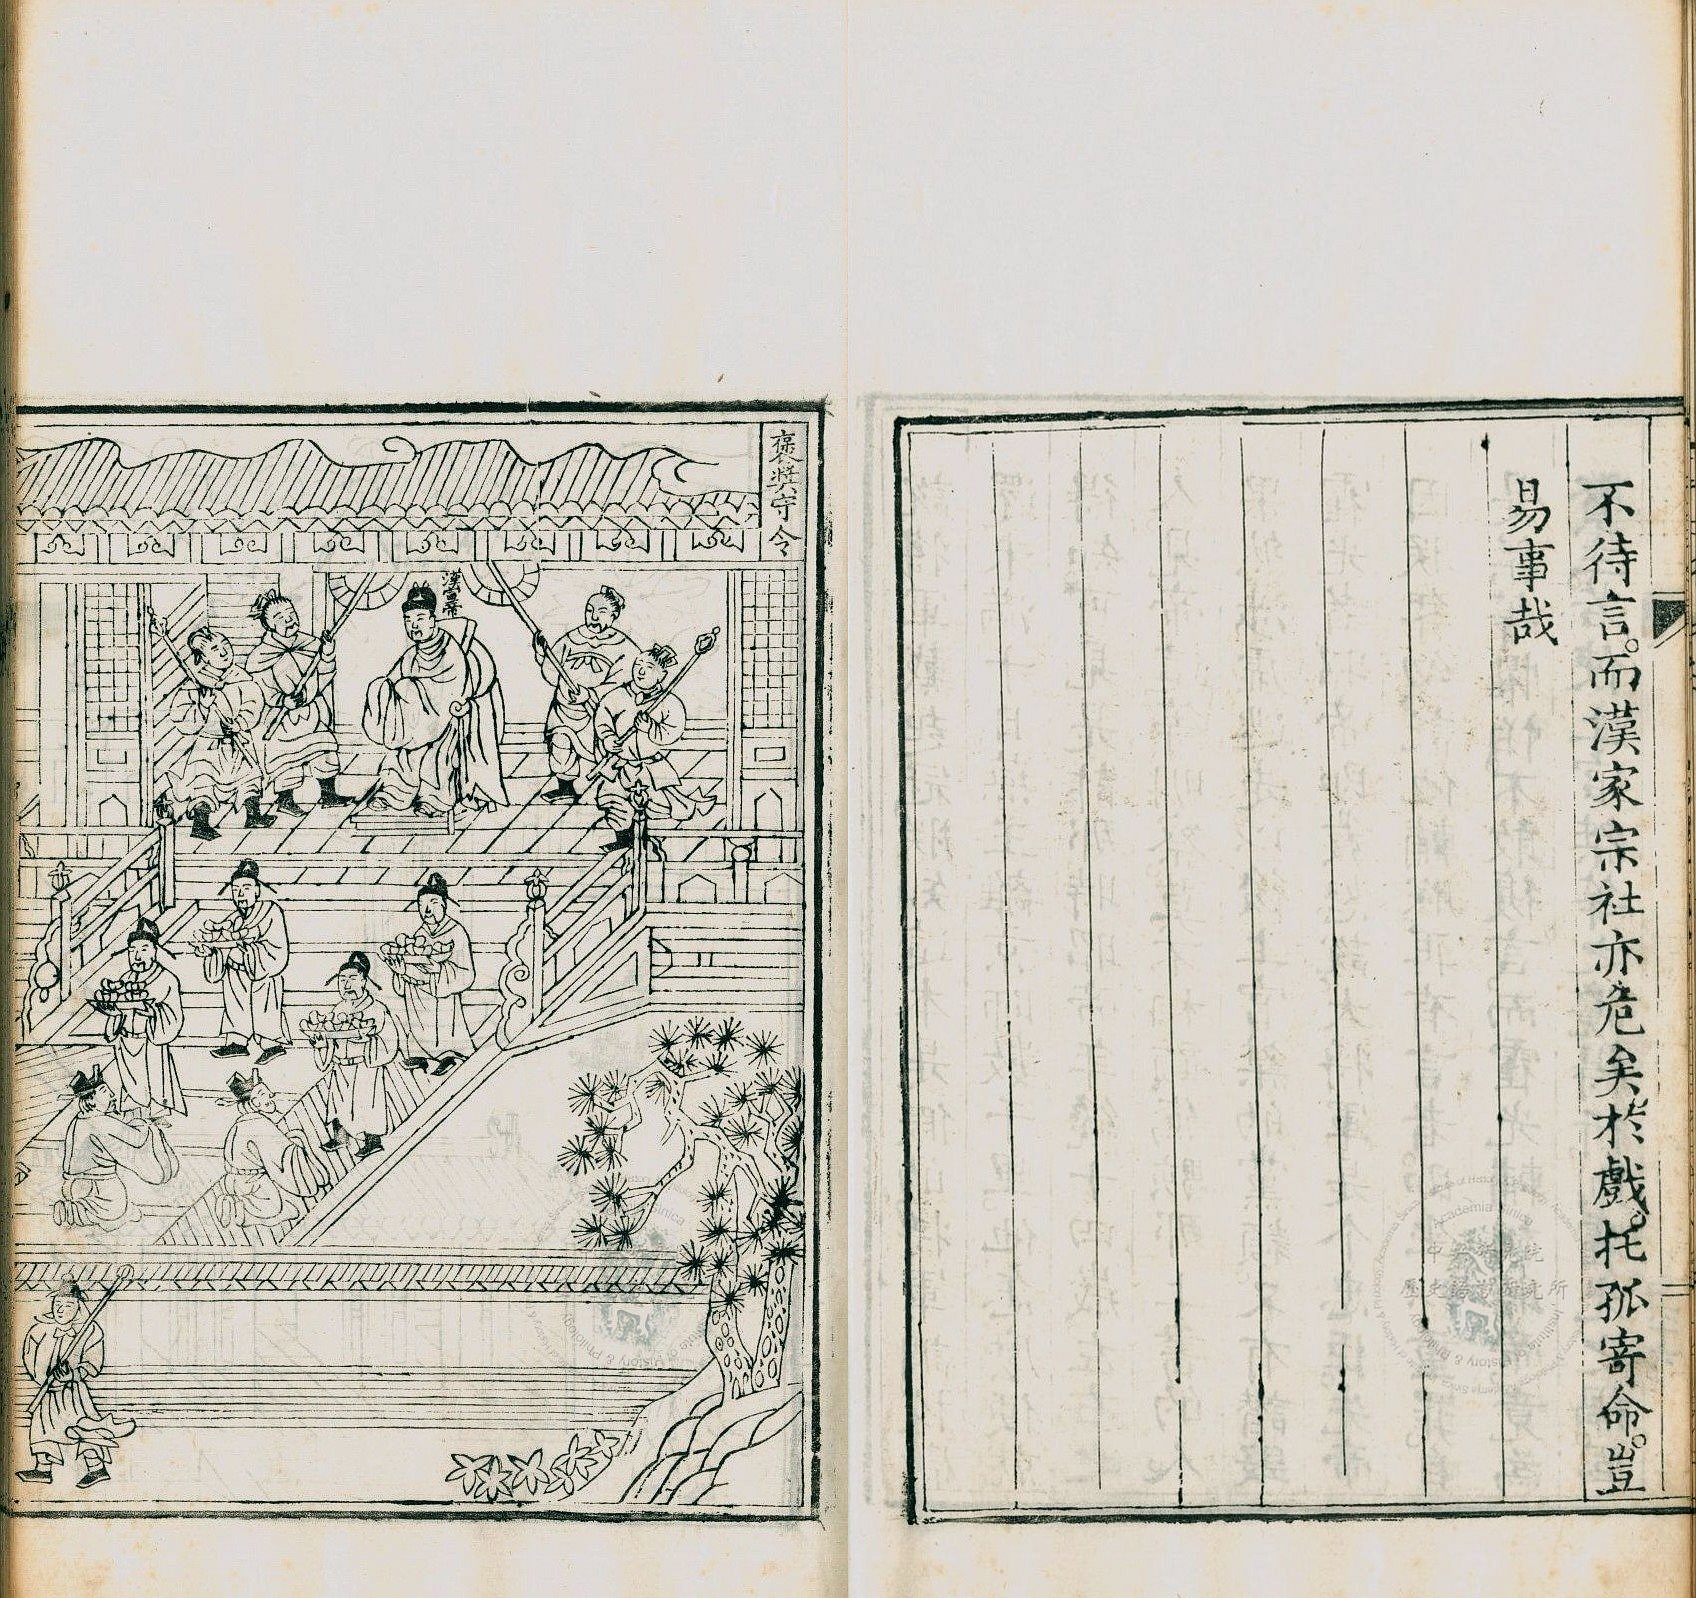 不待言。而漢家宗社亦危矣於戲。托孤寄命。豈
易事哉
褒奨守令
漢宣帝
Academia Sinica
中央研究院
歷史語言研究所
Institute of History & Philology